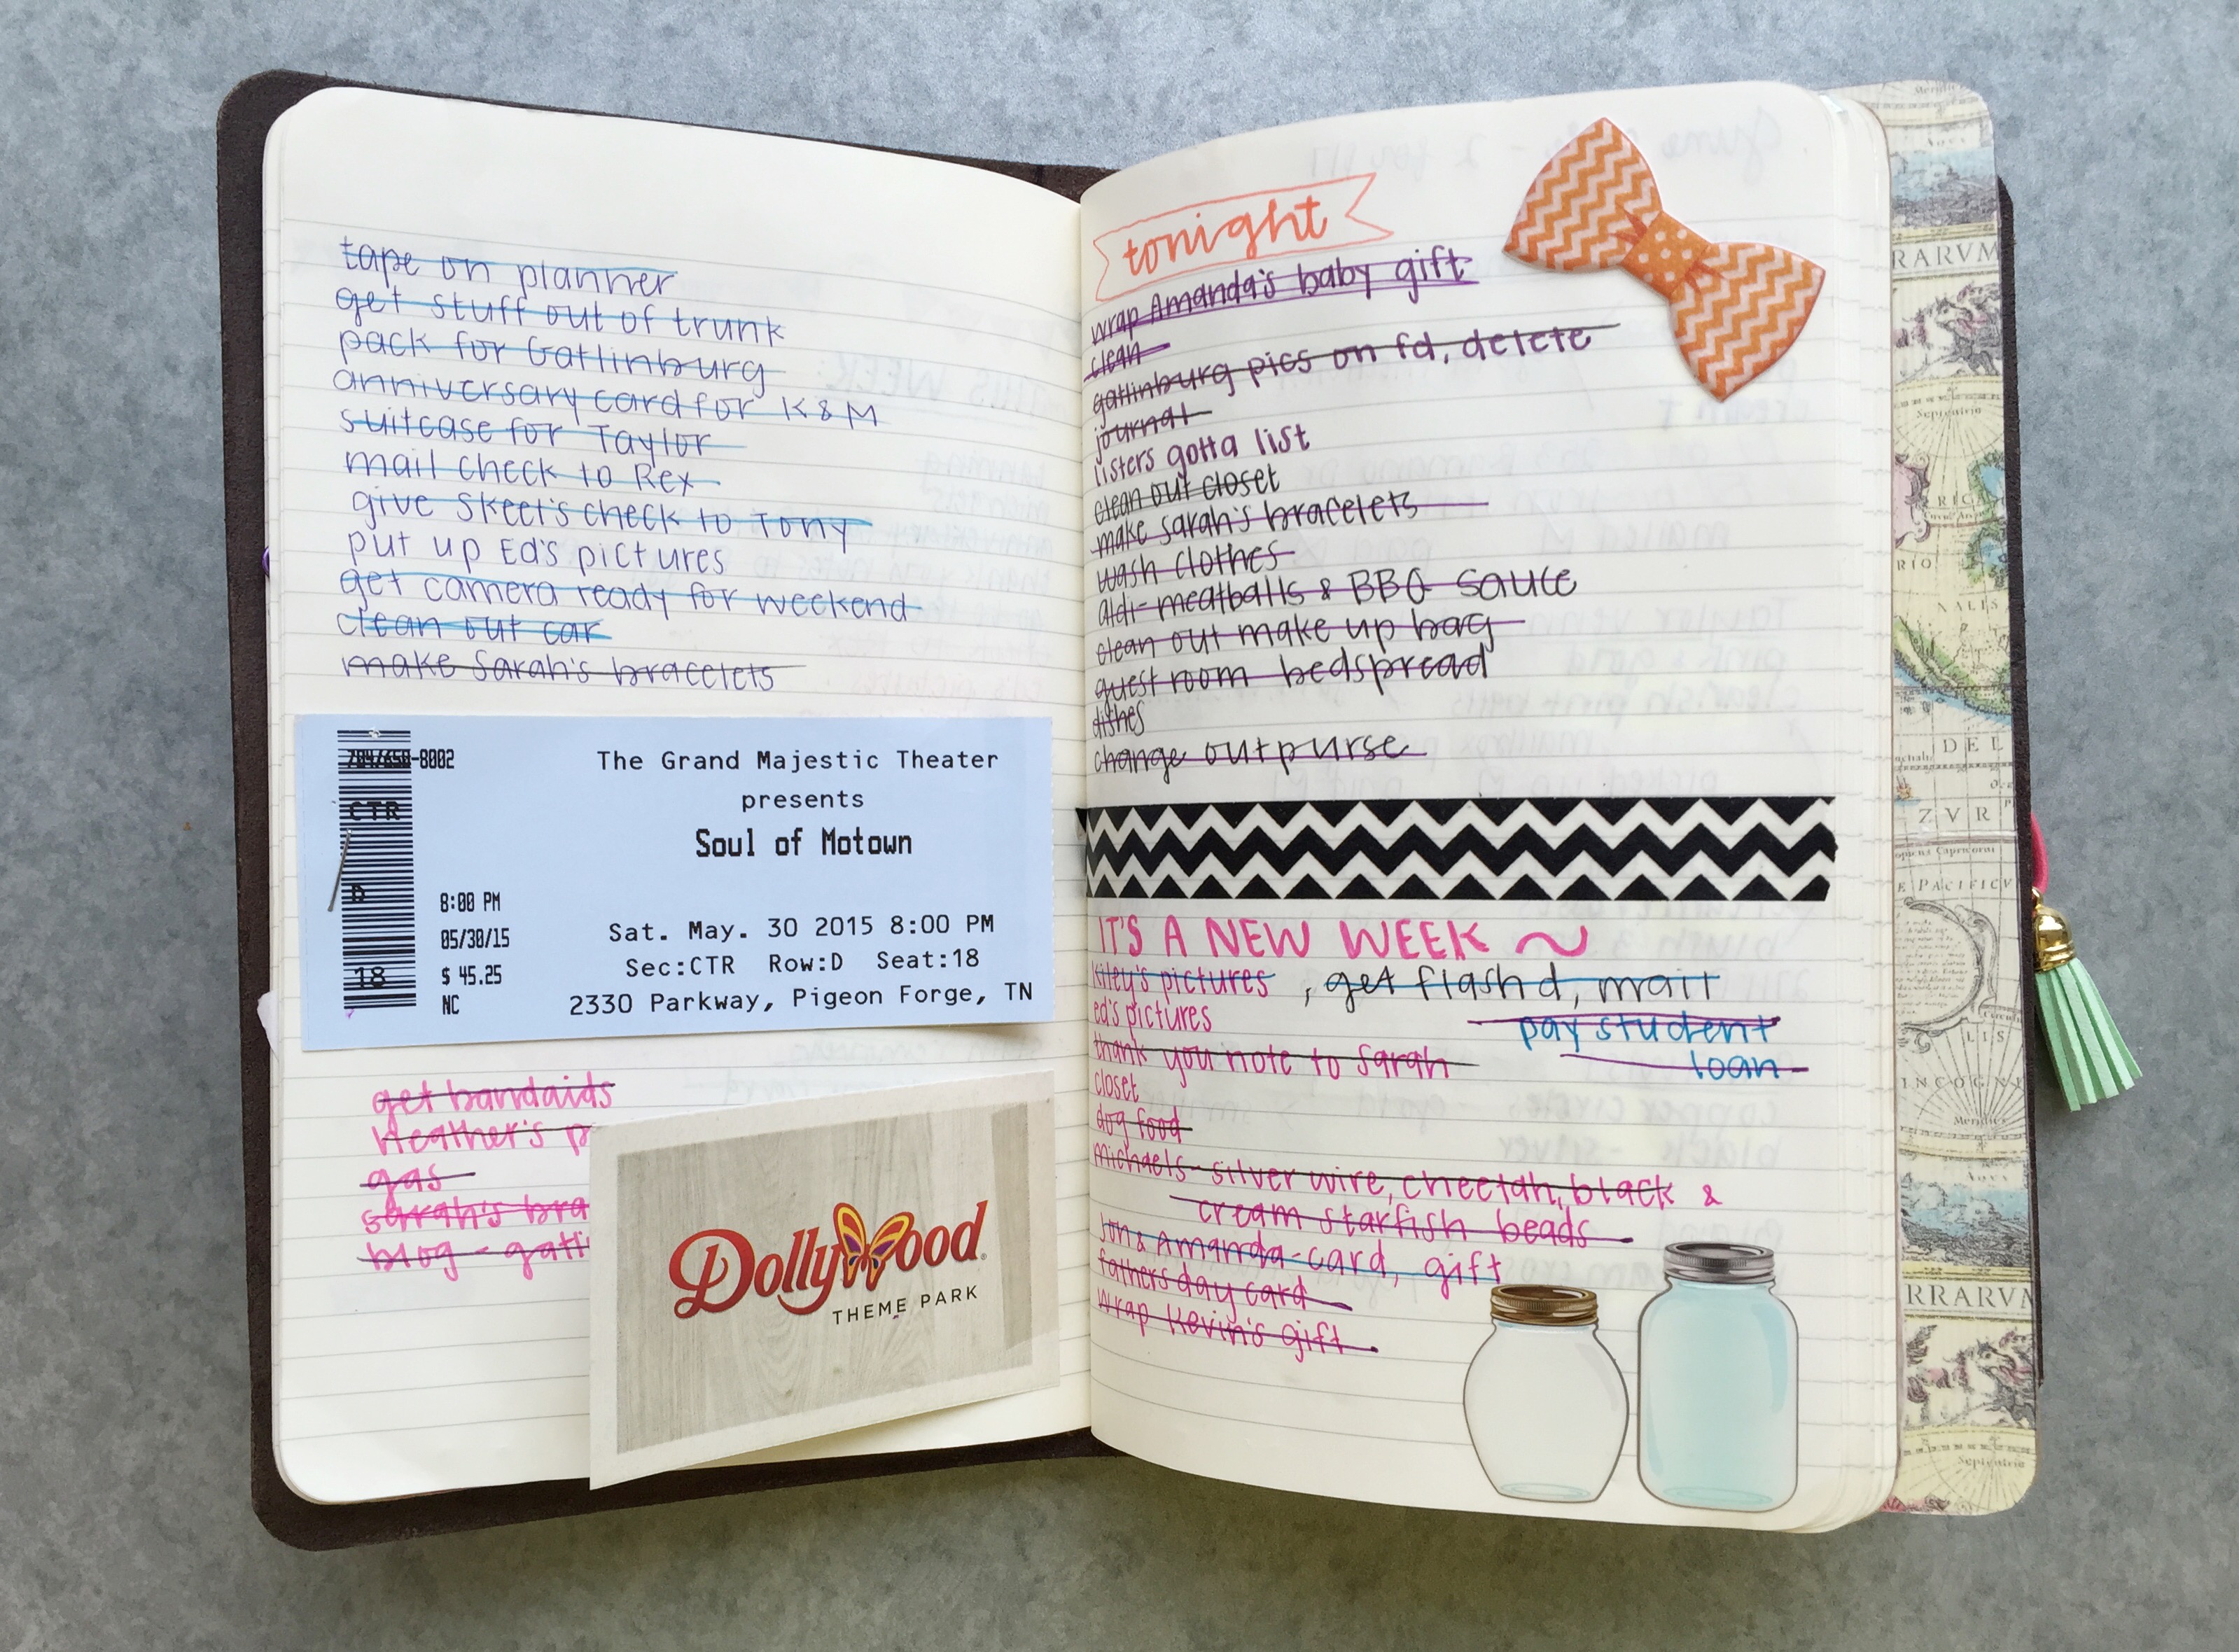 tape on planner
get stuff out of trunk
pack for Gatlinburg
anniversary card for K & M
suitcase for Taylor
mail check to Rex
give Skeet's check to Tony
put up Ed's pictures
get camera ready for weekend
clean out car
make Sarah's bracelets
-8002
CTR
D
18
8:00 PM
05/30/15
$ 45.25
NC
The Grand Majestic Theater
presents
Soul of Motown
Sat. May. 30 2015 8:00 PM
Sec:CTR Row:D Seat:18
2330 Parkway, Pigeon Forge, TN
get bandaids
Heather's p
gas
sarah's bra
blog - gatli
Dollywood
THEME PARK
tonight
wrap Amanda's baby gift
clean
gatlinburg pics on fd, delete
journal
listers gotta list
clean out closet
make sarah's bracelets
wash clothes
aldi-meatballs & BBQ sauce
clean out make up bag
guest room bedspread
dishes
change out purse
IT'S A NEW WEEK ~
kiley's pictures , get flash d, mail
ed's pictures
pay student
loan
thank you note to Sarah
closet
dog food
michaels - silver wire, cheetah, black &
cream starfish beads
Jon & Amanda-card, gift
fathers day card
wrap Kevin's gift
RARVM
Septentrio
RIO
DEL
ZVR
E PACIFICV
LIS
INCOGN
Meridi
RRARVM
Septentrio